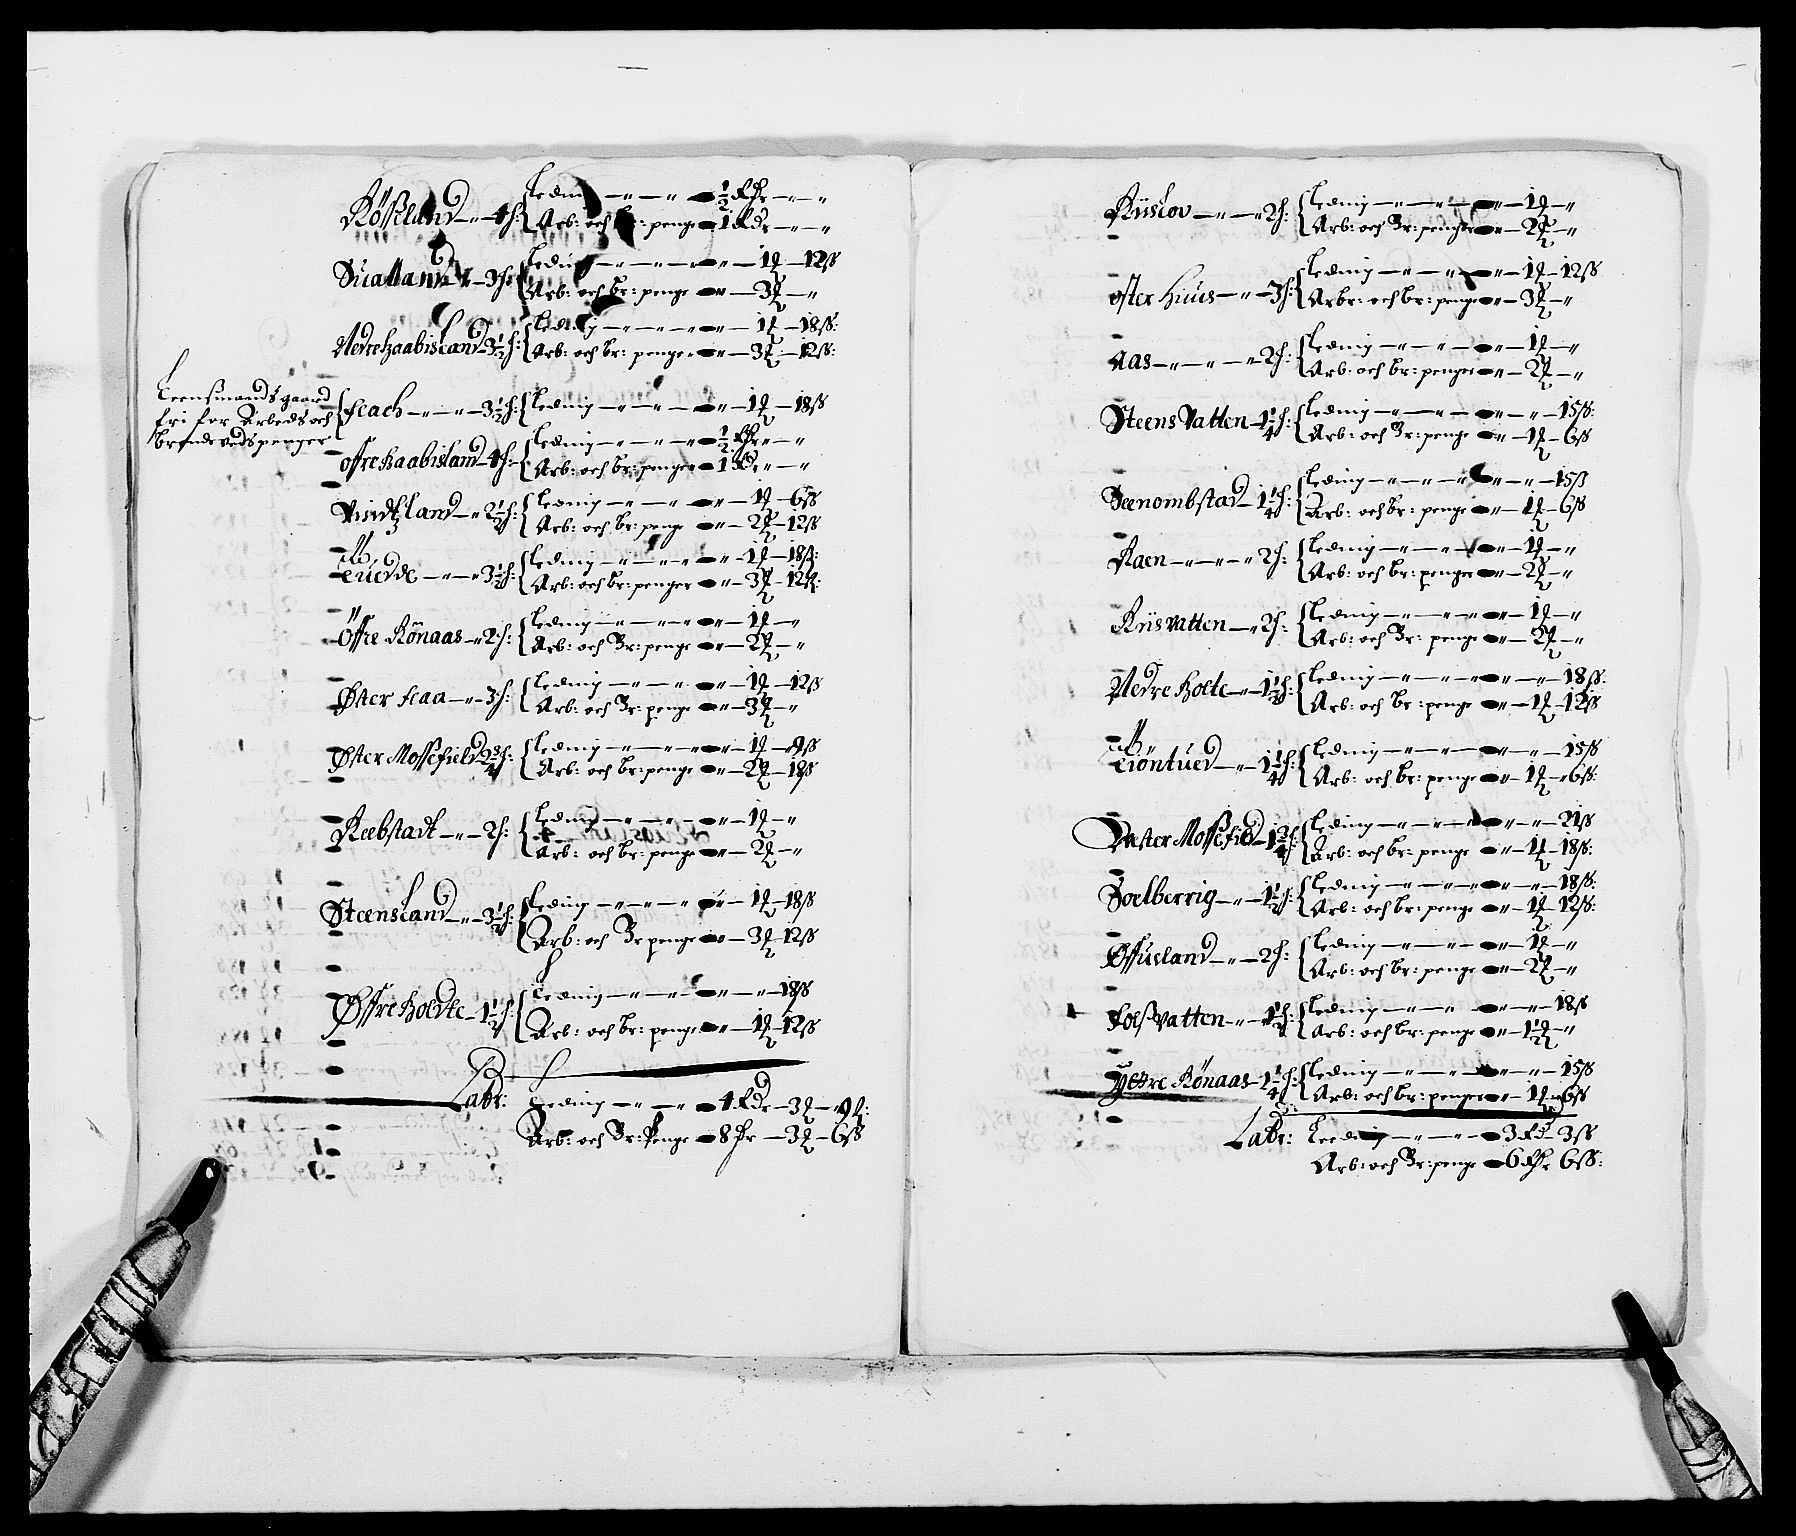 Rösseland — " — 4 h: Leding — " — " — ½ Rdr — " — "
Arb: och br: penge 1 Rdr — " — "
Sualland " — 3 h: Leding — " — " — " — 1 — 12 ß
Arb: och br: penge " — 3 — "
Nedre haabisland 3½ h: Leding — " — " — " — 1 — 18 ß:
Arb: och br: penger " — 3 — 12 ß:
Leensmands gaard
fri for Arbeds och
brendeveds penger
fleach — " — " — 3½ h: Leding — " — " — " — 1 — 18 ß
offre haabisland — 4 h: Leding — " — " — " ½ Rdr " — "
Arb: och br: penger 1 Rdr " — "
Vindtzland — " 2½ h: Leding — " — " — " — 1 — 6 ß
Arb: och br: penge " — 2 — 12 ß
Tuedde — " — " 3½ h: Leding — " — " — " — 1 — 18 ß:
Arb: och br: penger " — 3 — 12 ß:
Öffre Rönaas — " 2 h: Leding — " — " — " — 1 — "
Arb: och Br: penge " — 2 — "
Øster flaa — " — 3 h: Leding — " — " — " — 1 — 12 ß
Arb: och Br: penge " — 3 — "
Øster Mossefield 2¾ h: Leding — " — " — " — 1 — 9 ß
Arb: och br: penge " — 2 — 18 ß
Reebstadt — " — 2 h: Leding — " — " — " — 1 — "
Arb: och br: penge " — 2 — "
Steensland — " — 3½ h: Leding — " — " — " — 1 — 18 ß
Arb: och Br penge " — 3 — 12 ß
Øffre holdte — 1½ h: Leding — " — " — " — " — 18 ß
Arb: och br: penge " — 1 — 12 ß
Labr: Leding — " — " — 4 Rdr — 3 — 9 ß:
Arb: och Br: Penge 8 Rdr — 3 — 6 ß
Riislov — " — " 2 h: Leding — " — " — " — 1 — "
Arb: och Br: penge " — 2 — "
øster huus — " — 3 h: Leding — " — " — " — 1 — 12 ß
Arbr: och br: penge " — 3 — "
Aas — " — " — " 2 h: Leding — " — " — " — 1 — "
Arb: och br: penger " — 2 — "
Steens Vatten — 1¼ h: Leding — " — " — " — " — 15 ß:
Arb: och Br: penge " — 1 — 6 ß
Steenombstad — 1¼ h: Leding — " — " — " — " — 15 ß
Arb: och br: penge " — 1 — 6 ß
Raen — " — " — 2 h: Leding — " — " — " — 1 — "
Arb: och br: penger " — 2 — "
Riisvatten — " 2 h: Leding — " — " — " — 1 — "
Arb: och Br: penge " — 2 — "
Nedre holte — " 1½ h: Leding — " — " — " — " — 18 ß:
Arb: och br: penge " — 1 — 12 ß
Tiöntued — " — 1¼ h: Leding — " — " — " — " — 15 ß
Arb: och br: penge " — 1 — 6 ß:
Vester Mossefield 1¾ h: Leding — " — " — " — " — 21 ß
Arb: och br: penge " — 1 — 18 ß:
Soelberrig — " — 1½ h: Leding — " — " — " — " — 18 ß:
Arb: och br: penge " — 1 — 12 ß:
Øffusland — " — 2 h: Leding — " — " — " — 1 — "
Arb: och br: penge " — 2 — "
vatten — " — 1½ h: Leding — " — " — " — " — 18 ß
Arb: och br: penge " — 1½ — "
Rönaas — 1¼ h: Leding — " — " — " — " — 15 ß
Arb: och br: penge " — 1 — 6 ß
Labr: Leeding — " — " — 3 Rd — 3 ß
Arb: och Br: penge 6 Rdr 6 ß: